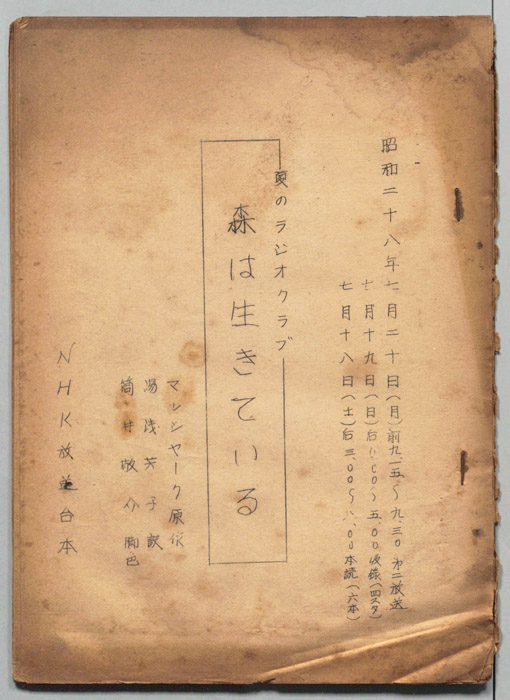 昭和二十八年七月二十日(月)前九.一五〜九.三〇 第二放送
七月十九日(日)后 〇〇〜五、〇〇收録(四スタ)
七月十八日(土)后三、〇〇〜 〇〇本読(六本)
夏のラジオクラブ
森は生きている
マルシャーク原作
湯浅芳子訳
筒井敬介脚色
NHK放送台本